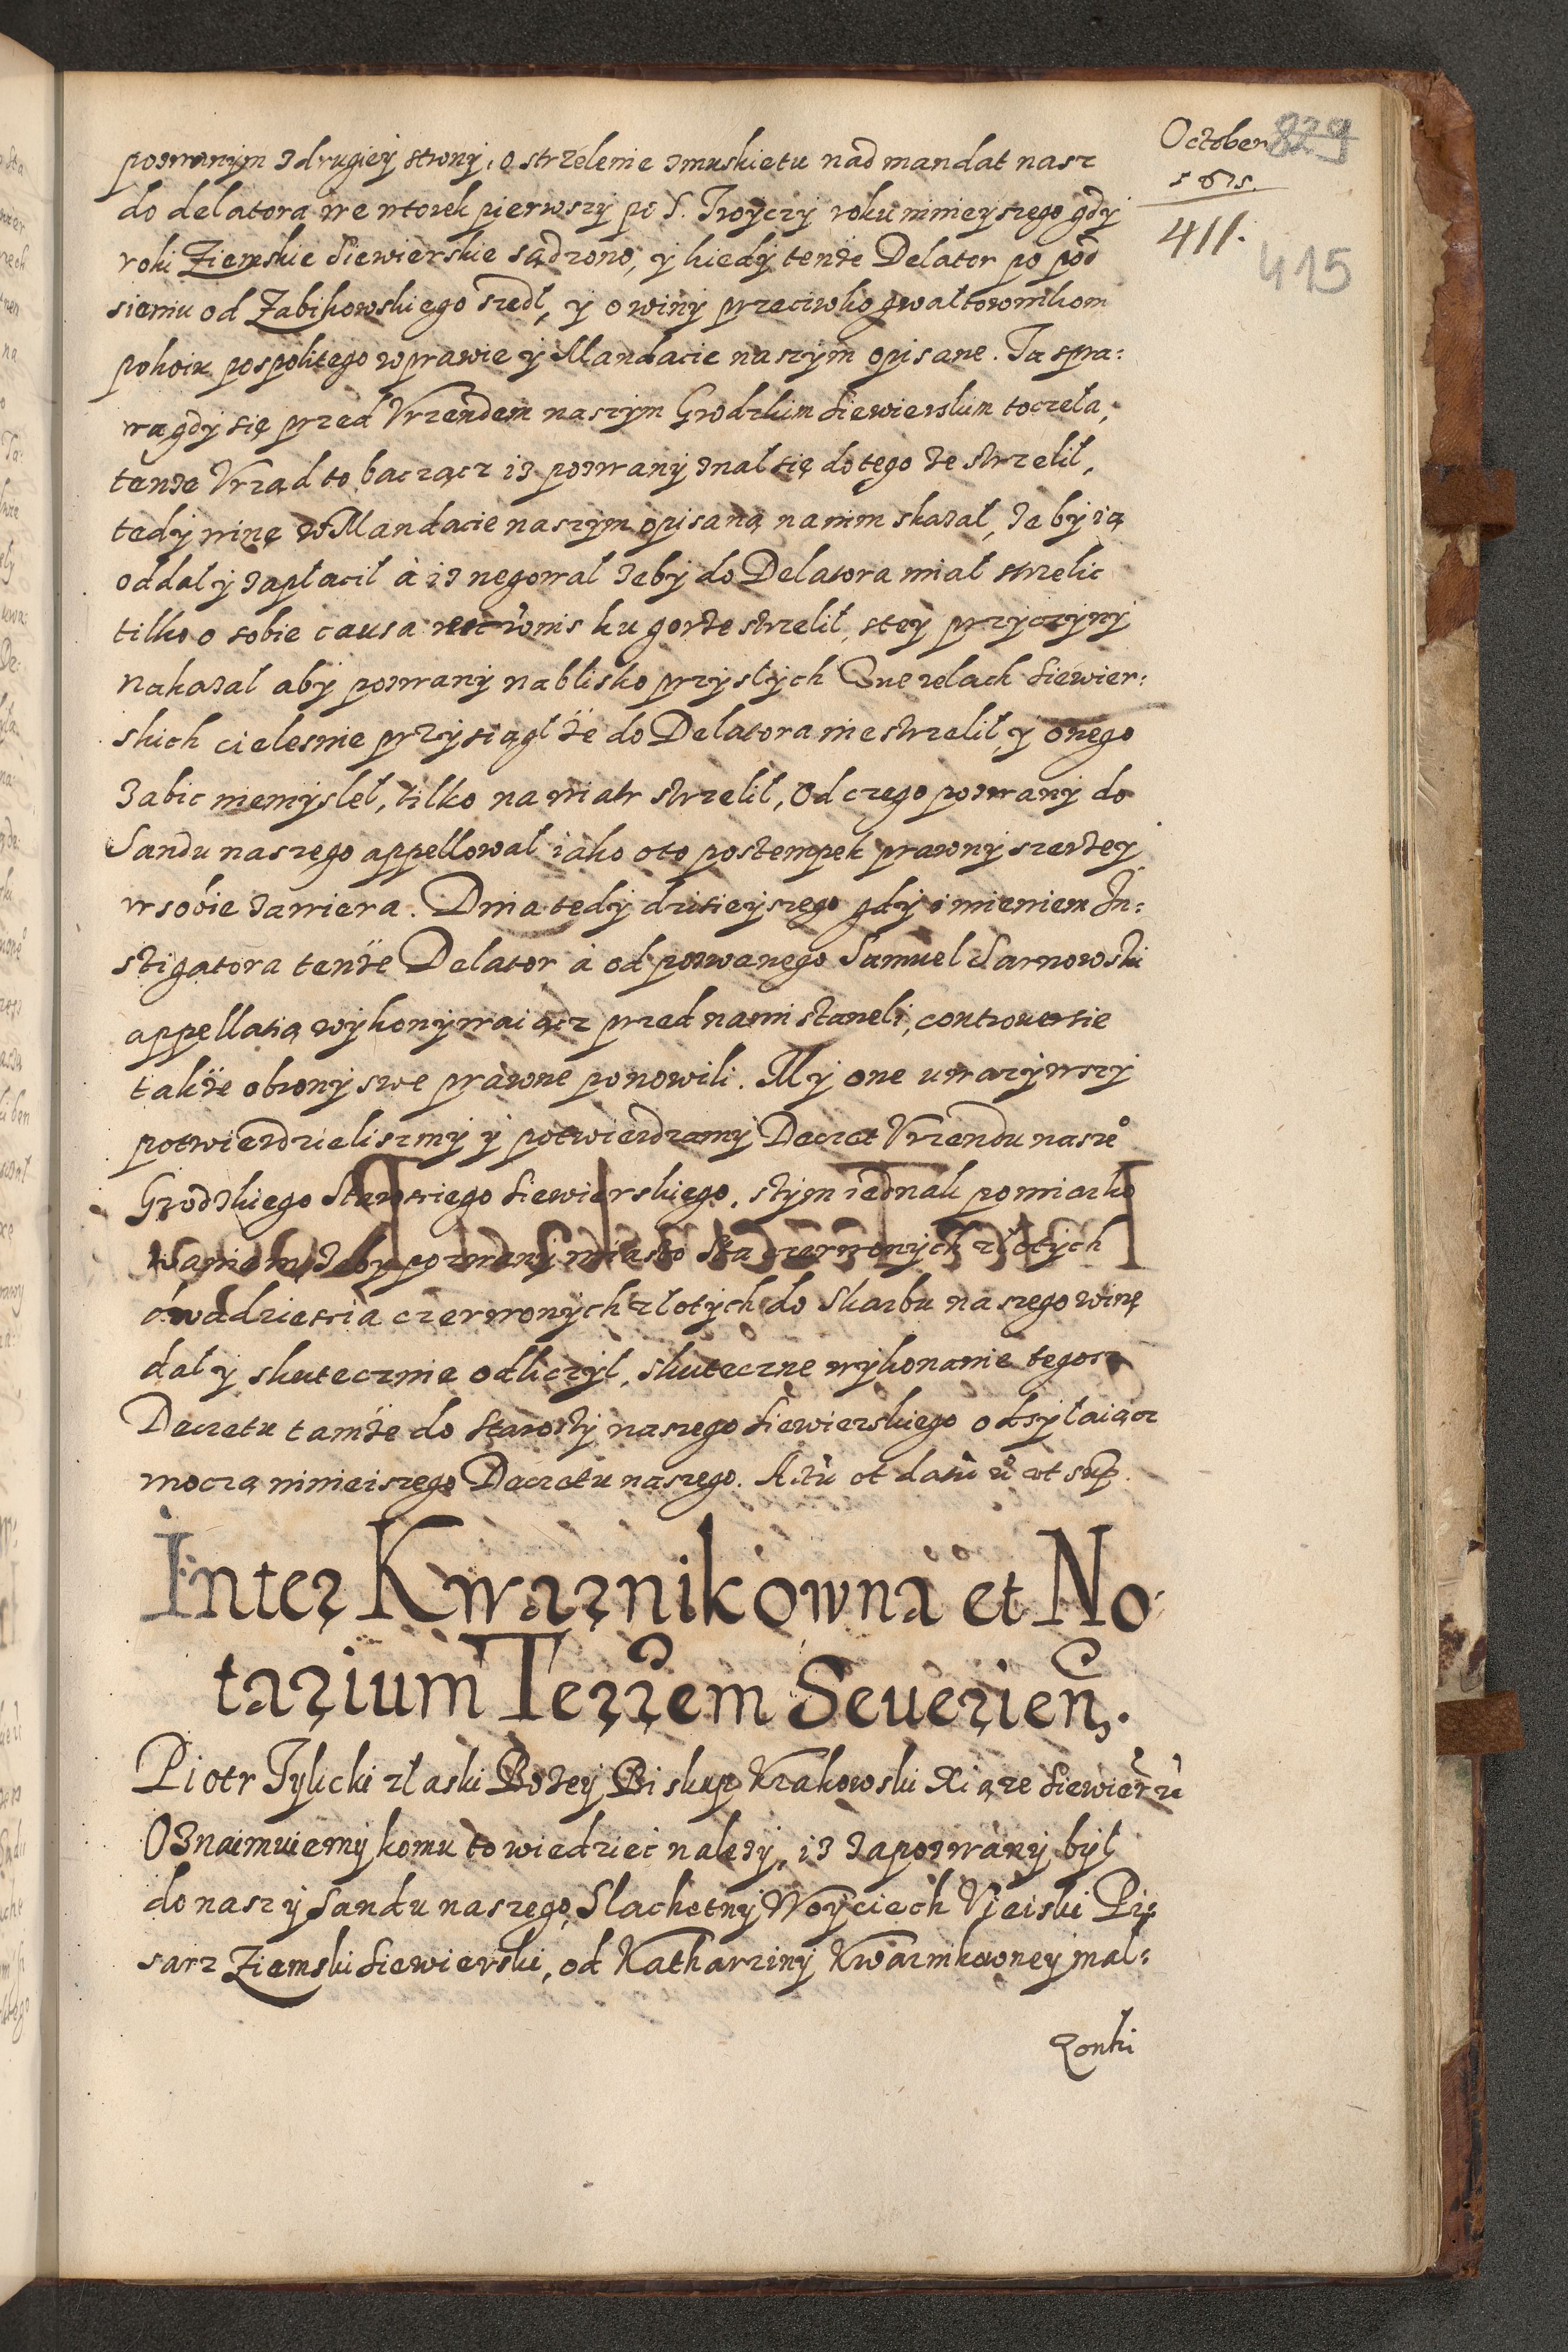 October 829
1615.
411.
415
pozwanym z drugiey strony, o strzelenie z muskietu nad mandat nasz
do delatora we wtorek pierwszy po S. Troyczy roku ninieyszego gdy
roki Ziemskie Siewierskie sądzono, y kiedy tenże Delator po pod
sieniu od Ząbikowskiego szedł, y o winy przeciwko gwałtownikom
pokoiu pospolitego w prawie y Mandacie naszym opisane. Ta spra:
wa gdy się przed Vrzendem naszym Grodzkim Siewierskim toczeła,
tenże Vrząd to bacząc iz pozwany znał się do tego że strzelił,
tedy winę w Mandacie naszym opisaną na nim skazał, że by ią
oddał y zapłacił à iz negował żeby do Delatora miał strzelic
tilko o sobie causa ku gorze strzelił, s tey przyczyny
nakazał aby pozwany na blisko przyszłych Siewier:
skich cielesnie przysiągł że do Delatora nie strzelił, y onego
zabic niemyslel, tilko na wiatr strzelił, Od czego pozwany do
Sandu naszego appellował iako o to postempek prawny szerzey
w sobie zawiera. Dnia tedy dzisieyszego gdy imieniem In:
stigatora tenże Delator à od pozwanego Samuel Sarnowski
appellatią wykonywaiącz przed nami staneli, controuersie
także obrony swe prawne ponowili. My one uwazywszy
potwierdzieliszmy y potwierdzamy Decret Vrzendu nasze͠
Grodzkiego Starosciego Siewierskiego, s tym iednak pomiarko
waniem, żeby pozwany miasto sta czerwonych złotych
dwadziescia czerwonych złotych do Skarbu naszego winę
dał y skutecznie odliczył, skuteczne wykonanie tegosz
Decretu tamże do Starosty naszego Siewierskiego odsyłaiącz
moczą ninieiszego Decretu naszego. Actu et datu ut sup.
Inter Kwarnikowna et No:
tarium Terrem Seuerien.
Piotr Tylicki z łaski Bożey Biskup Krakowski Xiąze Siewier
Oznaimuiemy komu to wiedziec nalezy, iz zapozwany był
do naszy Sandu naszego, Slachetny Woyciech Vieiski Pi:
sarz Ziemski Siewierski, od Katharziny Kwarnikowney mal:
zonki